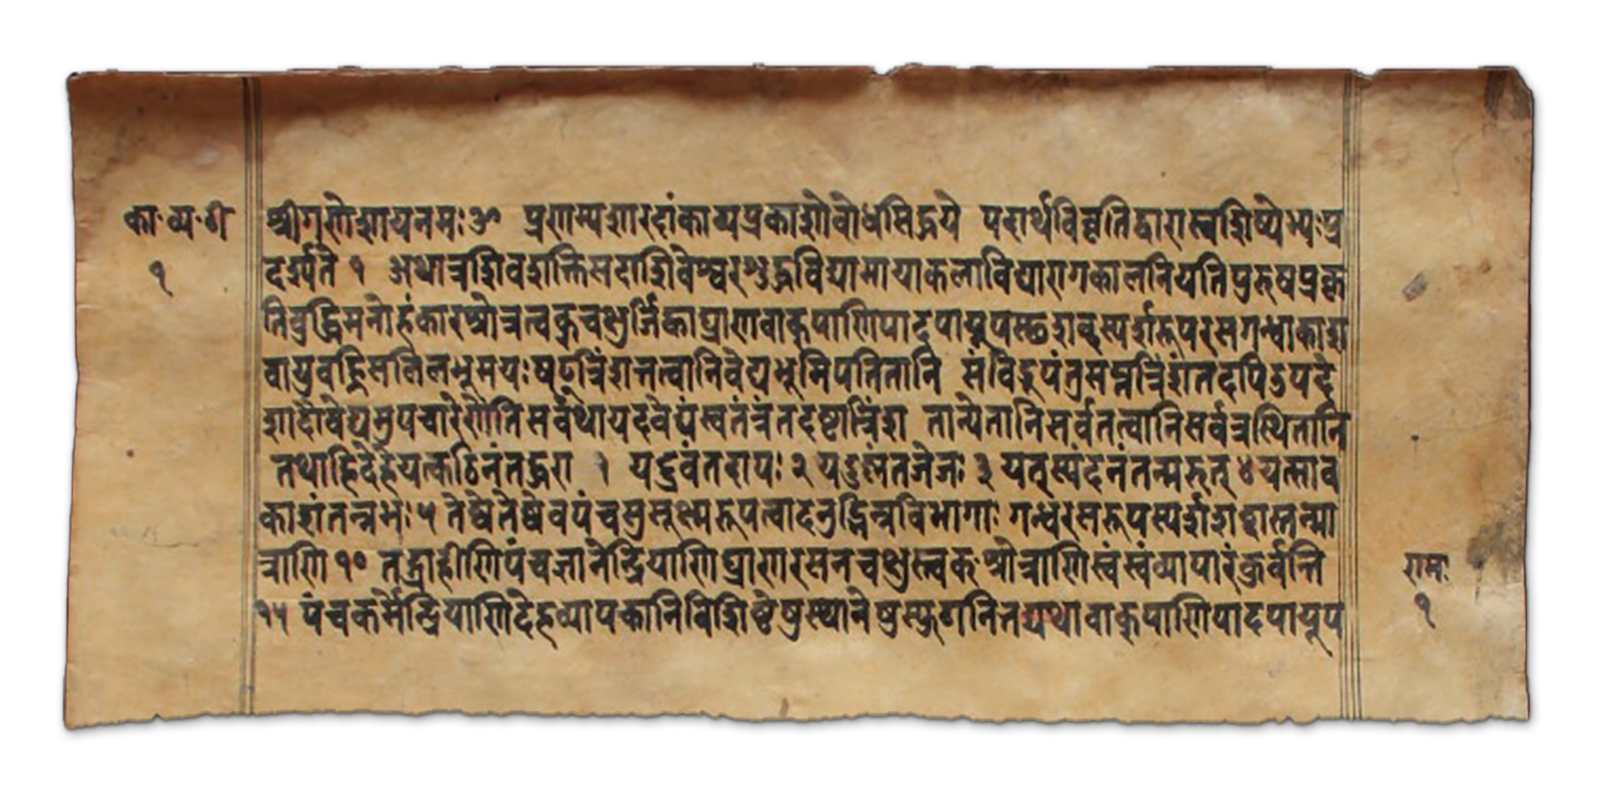 का॰ व्य॰ टी
१
श्रीगणेशायनमः ॐ प्रणम्यशारदांकाव्यप्रकाशोबोधसिद्धये पदार्थविवृतिद्वारास्वशिष्येभ्यःप्र
दर्श्यते १ अथात्रशिवशक्तिसदाशिवेश्वरशुद्धविद्यामायाकलाविद्यारागकालनियतिपुरुषप्रकृ
तिबुद्धिमनोहंकारश्रोत्रत्वक्चक्षुर्जिह्वाघ्राणवाक्पाणिपादपायूपस्थशब्दस्पर्शरूपरसगन्धाकाश
वायुवह्निसलिलभूमयःषट्त्रिंशत्तत्वानिवेद्यभूमिपतितानि संविद्रूपंतुसप्तत्रिंशंतदपिऽपदे
शादौवेद्यमुपचारेणेतिसर्वथायदवेद्यंस्वतंत्रंतदष्टात्रिंश तान्येतानिसर्वतत्वानिसर्वत्रस्थितानि
तथाहिदेहेयत्कठिनंतद्धरा १ यद्द्रवंतदापः २ यदुष्णंतत्तेजः ३ यत्स्पंदनंतन्मरुत् ४ यत्साव
काशंतन्नभः ५ तेष्वेतेष्वेवपंचसुसूक्ष्मरूपत्वादनुद्भिन्नविभागाः गन्धरसरूपस्पर्शशब्दास्तन्मा
त्राणि १० तद्ग्राहीणिपंचज्ञानेन्द्रियाणिघ्राणरसनचक्षुस्त्वक्श्रोत्राणिस्वंस्वंव्यापारंकुर्वन्ति
१५ पंचकर्मेन्द्रियाणिदेहव्यापकानिविशिष्टेषुस्थानेषुस्फुरन्तितद्यथावाक्पाणिपादपायूप
रामः
१